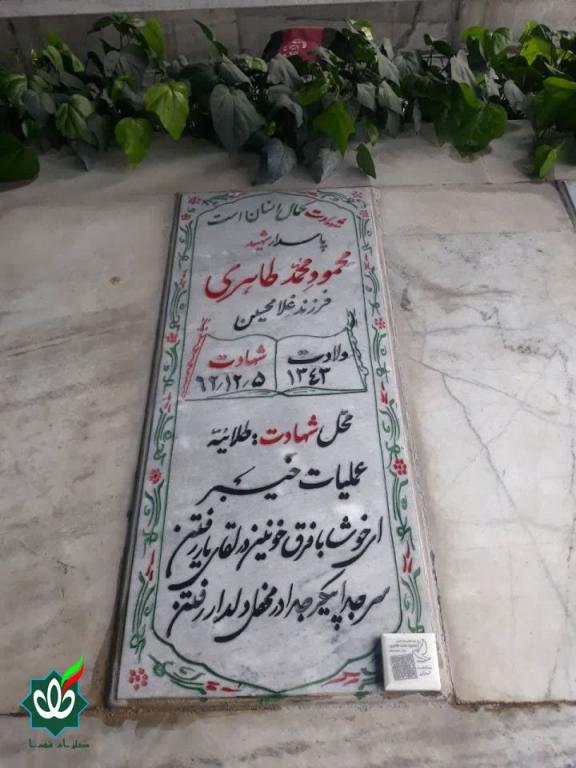 شهادت کمال انسان است
پاسدار شهید
محمود محمد طاهری
فرزند غلامحسین
ولادت
۱۳۴۳
شهادت
۶۲٫۱۲٫۵
محل شهادت: طلائیه
عملیات خیبر
ای خوشا با فرق خونین در لقای یار رفتن
سر جدا پیکر جدا در محفل دلدار رفتن
گلزار شهدا